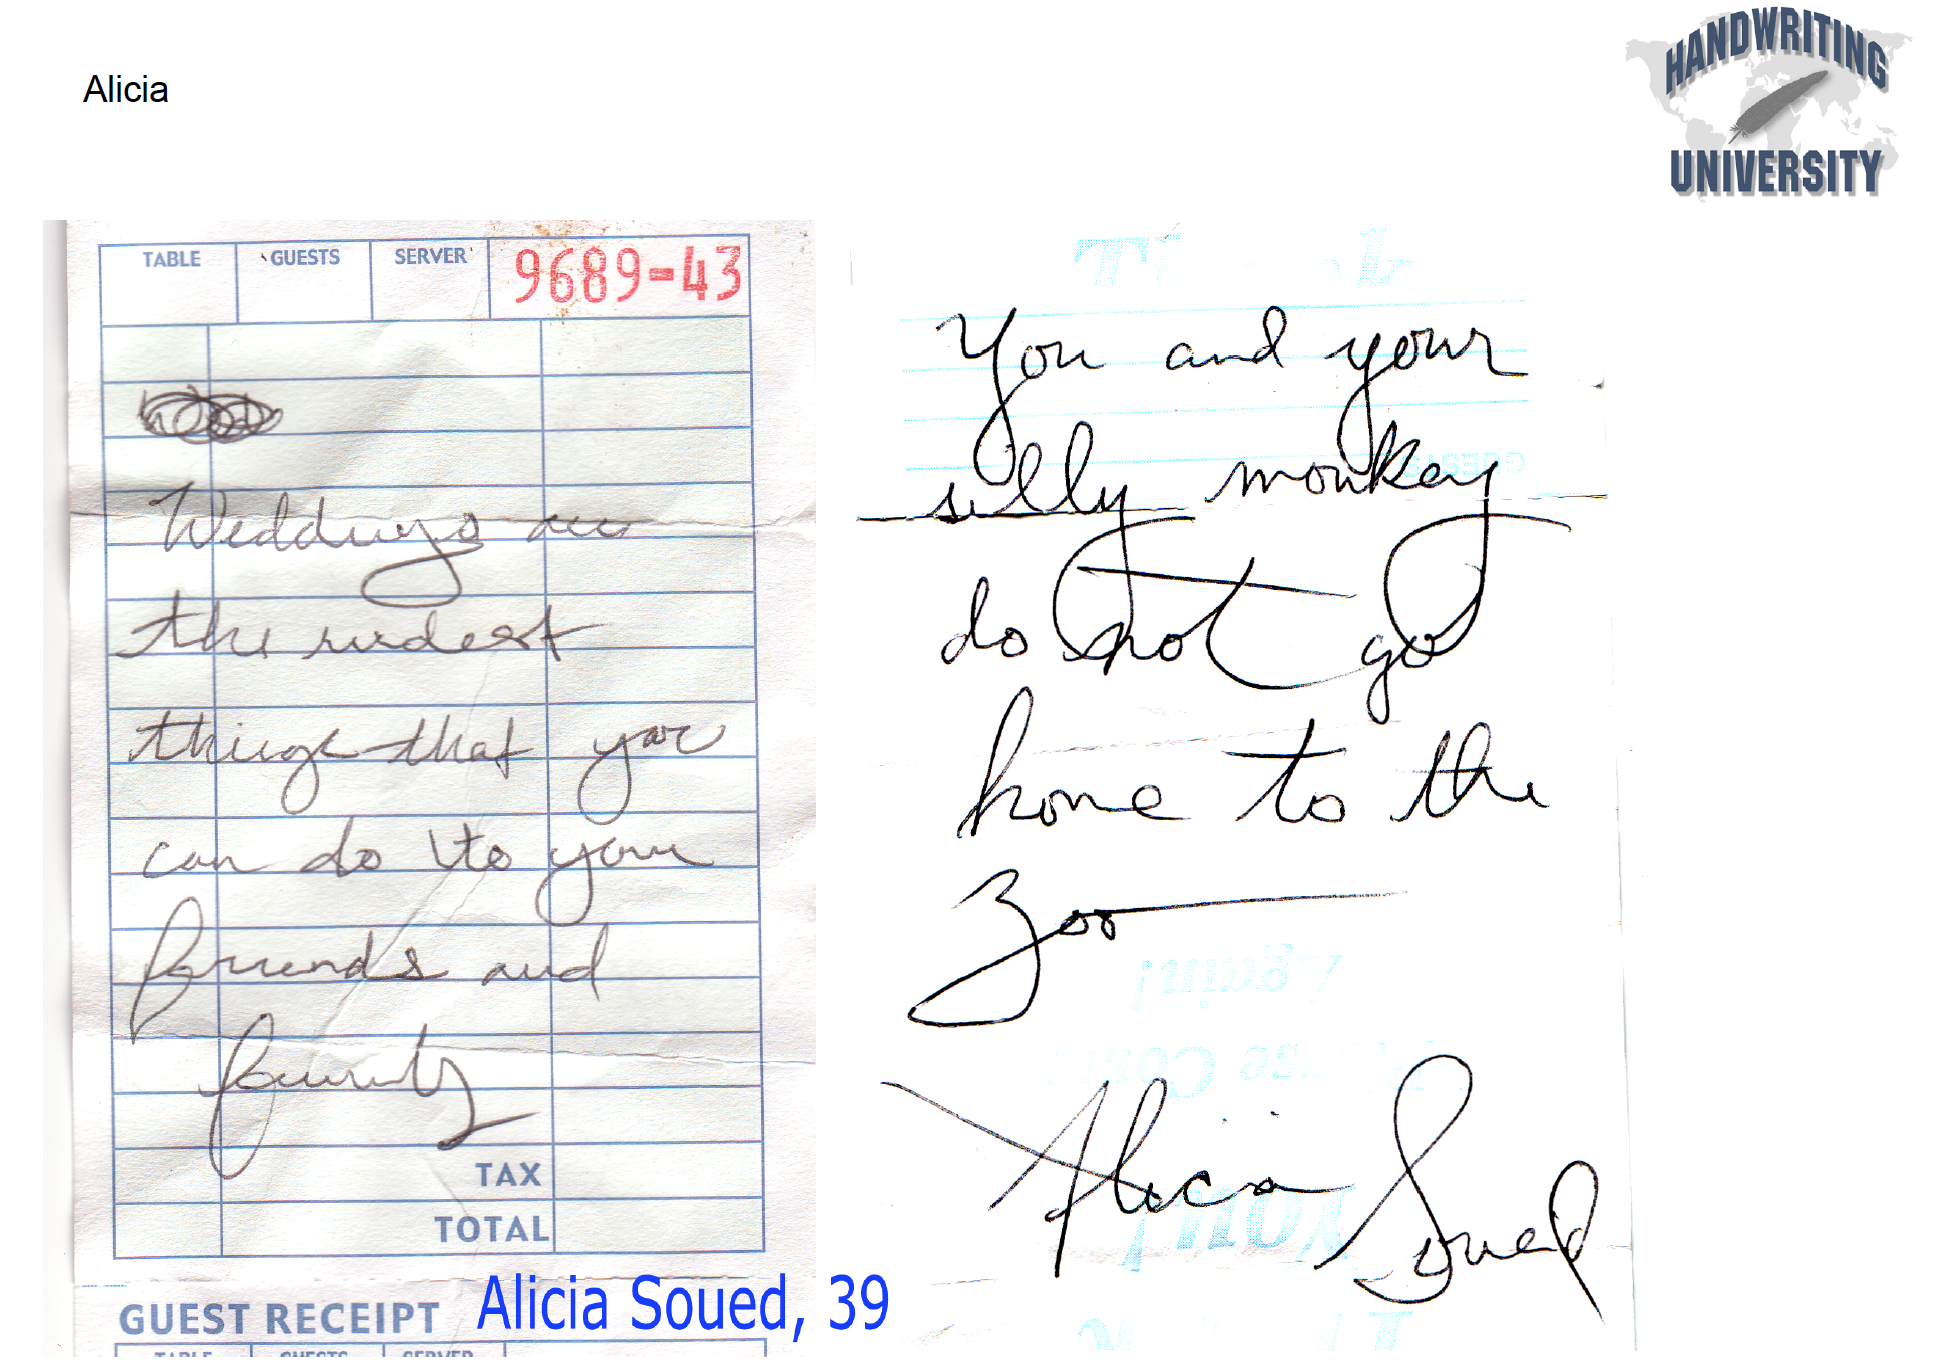 Alicia
HANDWRITING
UNIVERSITY
TABLE GUESTS SERVER 9689-43
Weddings are
the rudest
things that you
can do to your
friends and
family
TAX
TOTAL
GUEST RECEIPT
TABLE GUESTS SERVER
Alicia Soued, 39
You and your
silly monkey
do not go
home to the
zoo
Alicia Soued
Thank
GUESTS
Again!
Please Come
You!